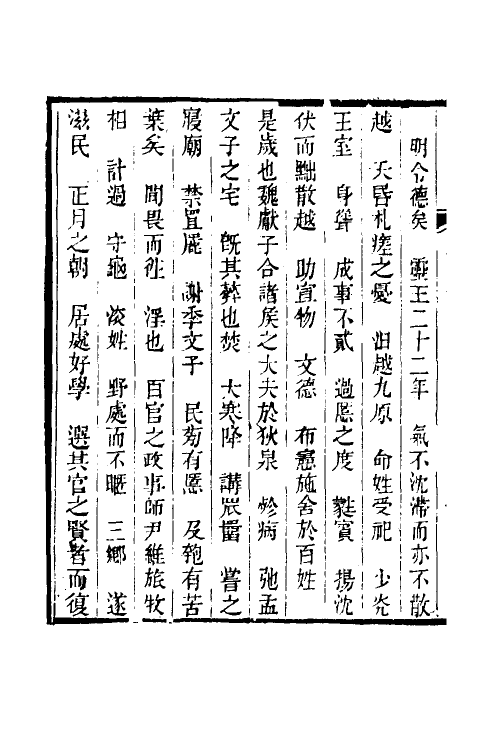 明令德矣　靈王二十二年　氣不沈滯而亦不散
越　夭昏札瘥之憂　汨越九原　命姓受祀　少光
王室　身聳　成事不貳　過慝之度　蕤賓　揚沈
伏而黜散越　助宣物　文德　布憲施舍於百姓
是歲也魏獻子合諸侯之大夫於狄泉　病　弛孟
文子之宅　旣其葬也焚　大寒降　講罛罶　嘗之
寢廟　禁罝　謝季文子　民旁有慝　及匏有苦
葉矣　間晨而　淫也　百官之政事師尹維旅牧
相　計過　守龜　姓　野處而不暱　三鄉　遂
滋民　正月之朝　居處好學　選其官之賢者而復